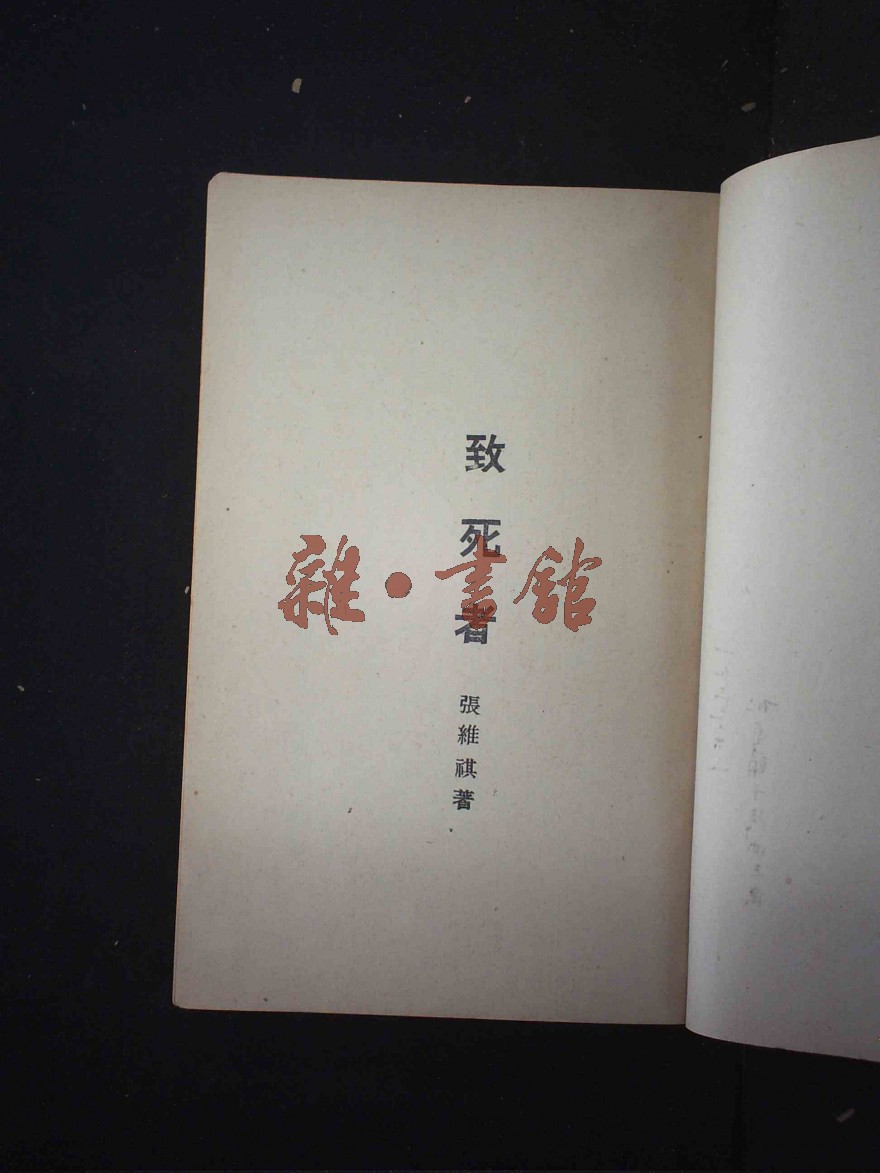 致死者
張維祺著
雜·書館